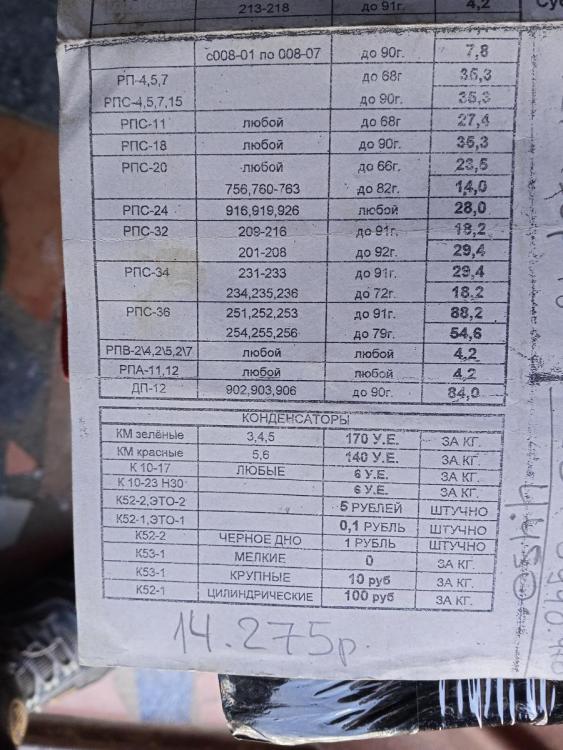 213-218 до 91г. 4,2
с008-01 по 008-07 до 90г. 7,8
РП-4,5,7 до 68г 35,3
РПС-4,5,7,15 до 90г. 35,3
РПС-11 любой до 68г 27,4
РПС-18 любой до 90г. 35,3
РПС-20 любой до 66г. 23,5
756,760-763 до 82г. 14,0
РПС-24 916,919,926 любой 28,0
РПС-32 209-216 до 91г. 18,2
201-208 до 92г. 29,4
РПС-34 231-233 до 91г. 29,4
234,235,236 до 72г. 18,2
РПС-36 251,252,253 до 91г. 88,2
254,255,256 до 79г. 54,6
РПВ-2\4,2\5,2\7 любой любой 4,2
РПА-11,12 любой любой 4,2
ДП-12 902,903,906 до 90г. 84,0
КОНДЕНСАТОРЫ
КМ зелёные 3,4,5 170 У.Е. ЗА КГ.
КМ красные 5,6 140 У.Е. ЗА КГ.
К 10-17 ЛЮБЫЕ 6 У.Е. ЗА КГ.
К 10-23 Н30 6 У.Е. ЗА КГ.
К52-2,ЭТО-2 5 РУБЛЕЙ ШТУЧНО
К52-1,ЭТО-1 0,1 РУБЛЬ ШТУЧНО
К52-2 ЧЕРНОЕ ДНО 1 РУБЛЬ ШТУЧНО
К53-1 МЕЛКИЕ 0 ЗА КГ.
К53-1 КРУПНЫЕ 10 руб ЗА КГ.
К52-1 ЦИЛИНДРИЧЕСКИЕ 100 руб ЗА КГ.
14.275р.